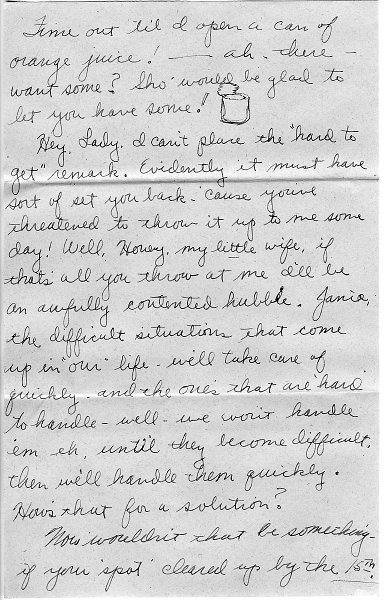 Time out 'til I open a can of
orange juice! — ah. there —
want some? Sho' would be glad to
let you have some!
Hey, Lady, I can't place the "hard to
get" remark. Evidently it must have
sort of set you back - 'cause you've
threatened to throw it up to me some
day! Well, Honey, my little wife, if
that's all you throw at me I'll be
an awfully contented hubble. Janie,
the difficult situations that come
up in 'our' life - we'll take care of
quickly - and the ones that are 'hard'
to handle - well - we won't handle
'em eh, until they become difficult,
then we'll handle them quickly.
How's that for a solution?
Now wouldn't that be something -
if your 'spot' cleared up by the 15th.